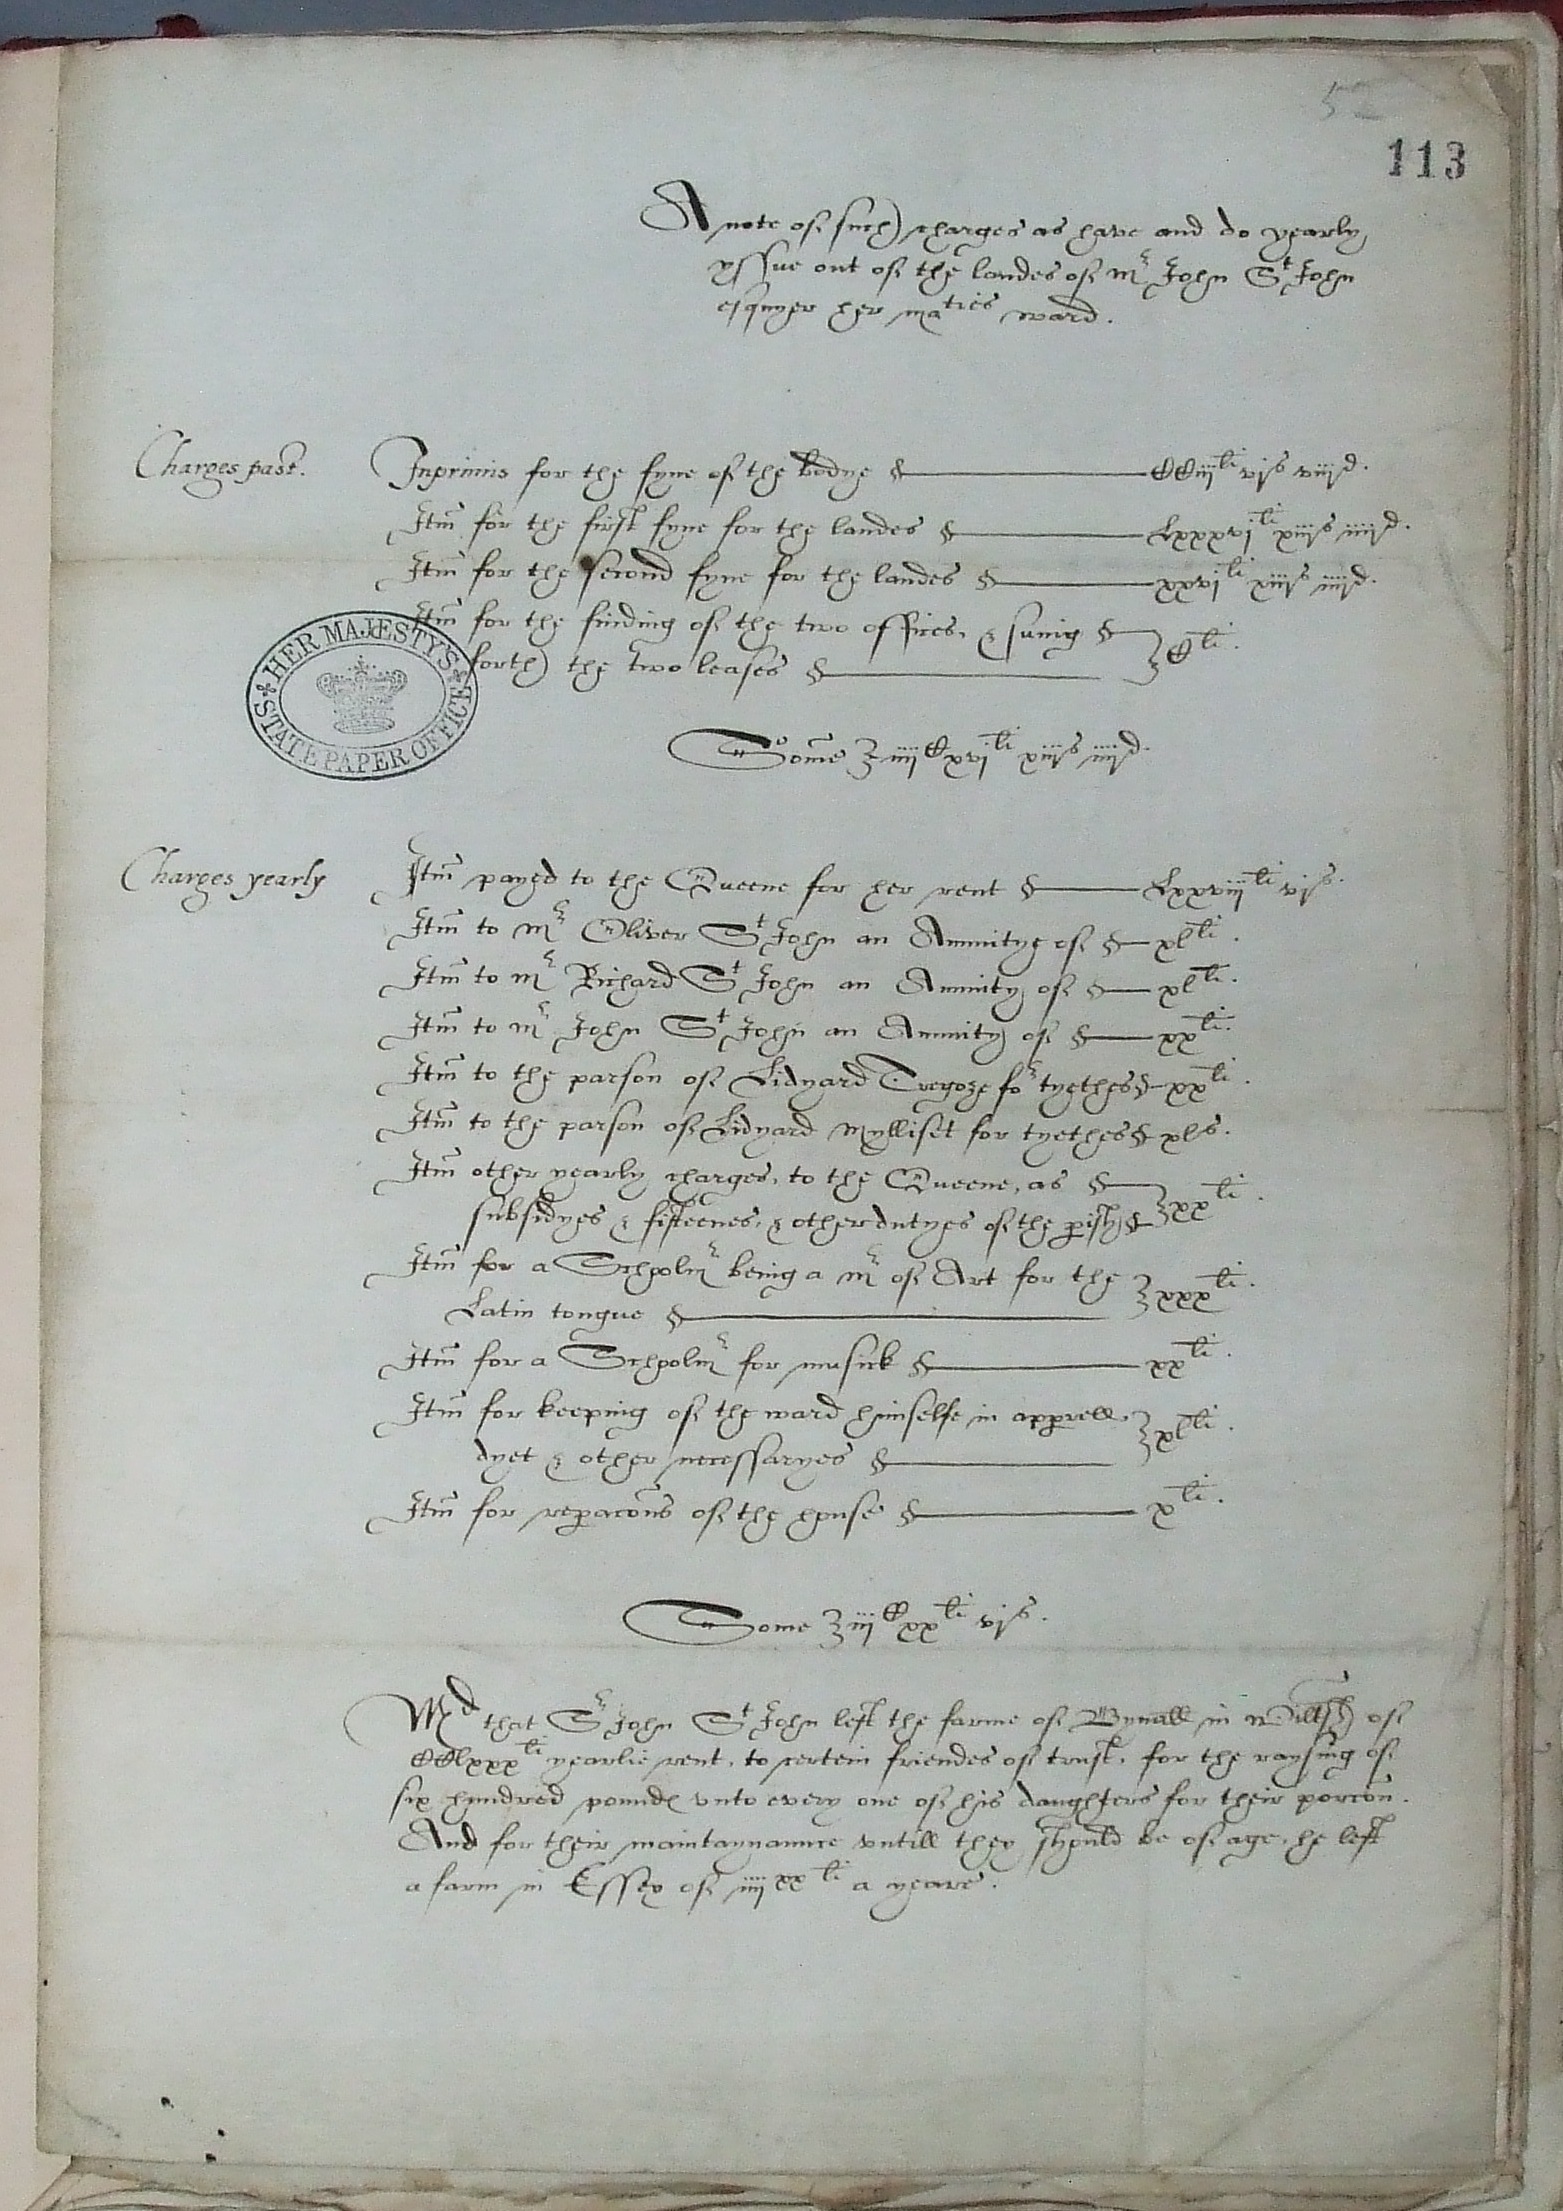 52
113
A note of such charges as have and do yearly
yssue out of the landes of Mr John St John
esquyer her maties ward.
Charges past. Inprimis for the fyne of the bodye CCiiili vjs viijd.
Itm for the first fyne for the landes Lxxxvjli xiijs iiijd.
Itm for the second fyne for the landes xxvjli xiijs iiijd.
Itm for the finding of the two offices, & suing
forth the two leases Cli.
HER MAJESTY'S
STATE PAPER OFFICE
Some iiijCxvjli xiijs iiijd.
Charges yearly Itm payed to the Queene for her rent Lxxviijli vjs.
Itm to Mr Oliver St John an Annuitye of xlli.
Itm to Mr Richard St John an Annuity of xlli.
Itm to Mr John St John an Annuity of xxli.
Itm to the parson of Lidyard Tregoze for tyethes xxli.
Itm to the parson of Lidyard Mylliset for tyethes xls.
Itm other yearly charges, to the Queene, as
subsidyes & fifteenes, & other dutyes of the pish xxli.
Itm for a Scholmr being a Mr of Art for the
Latin tongue xxxli.
Itm for a Scholmr for musick xxli.
Itm for keeping of the ward himselfe in apprell,
dyet & other necessaryes xlli.
Itm for repacons of the house xli.
Some iijCxxli vjs.
Md that Sr John St John left the farme of Bynall in Wiltsh of
CClxxxli yearlie rent, to certein friendes of trust, for the raysing of
six hundred pounds unto every one of his daughters for their porcon.
And for their maintaynaunce untill they should be of age, he left
a farm in Essex of iiijxxli a yeare.